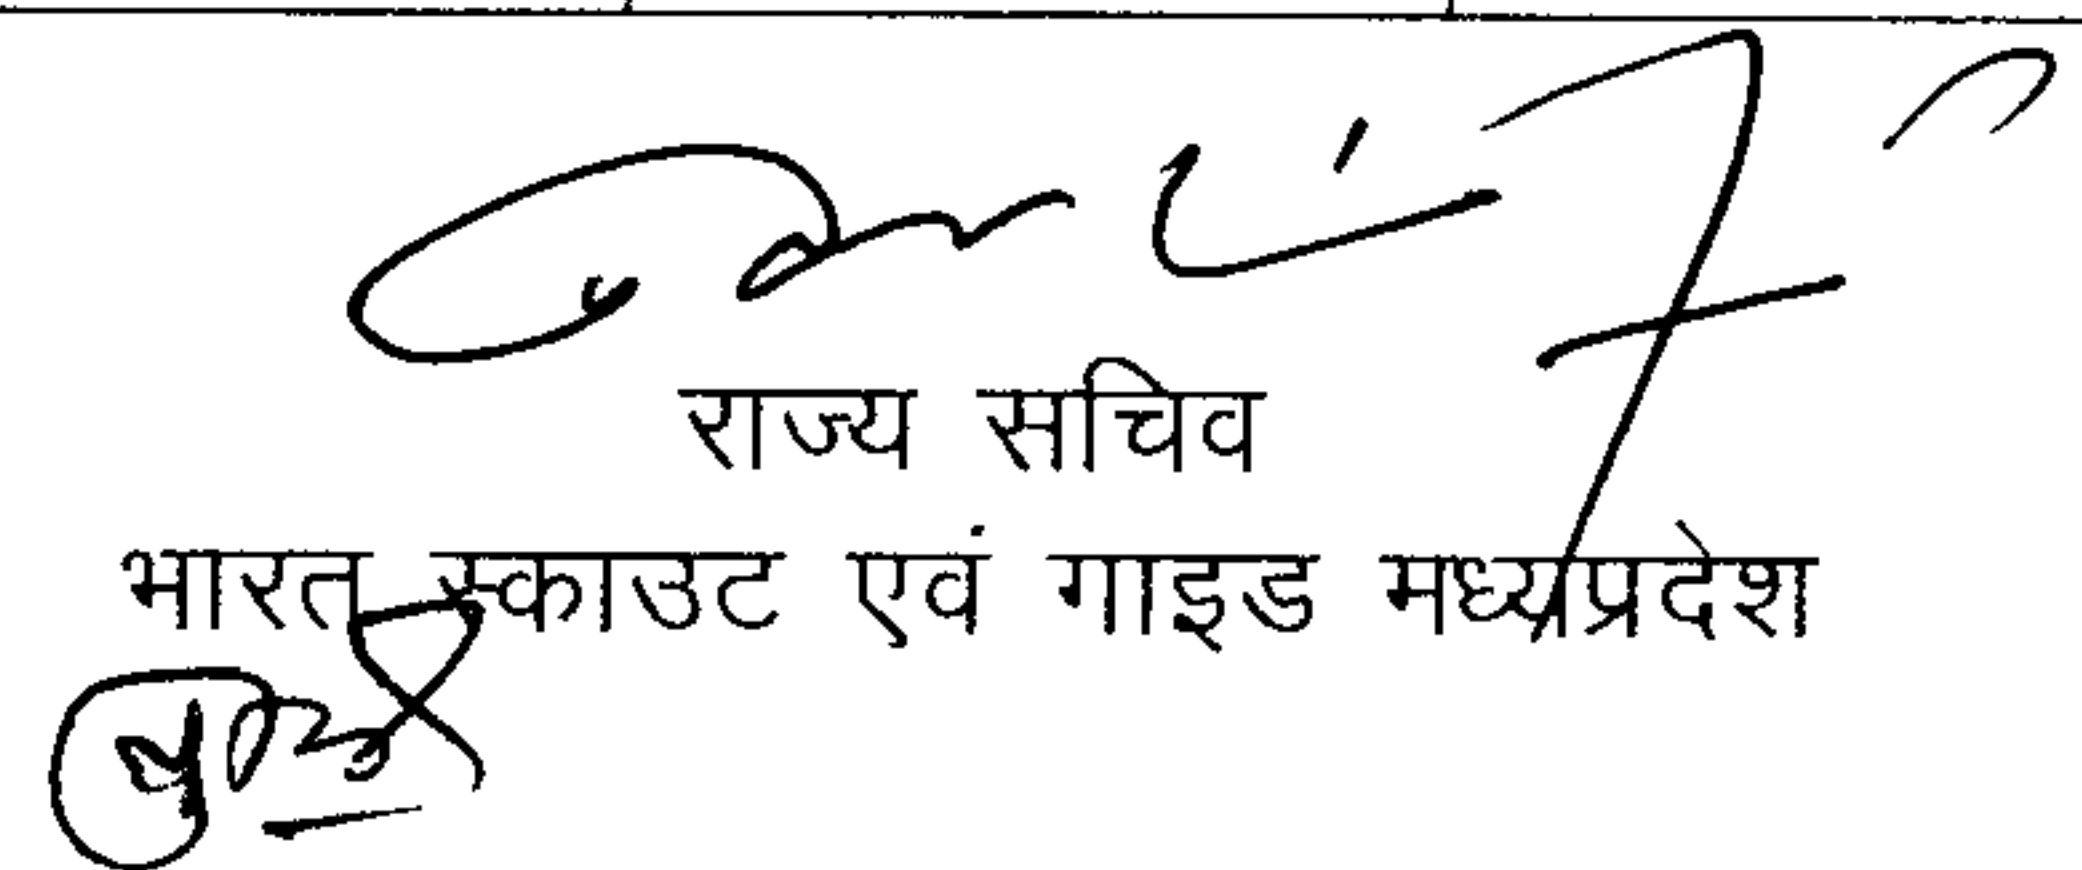 राज्य सचिव
भारत स्काउट एवं गाइड मध्यप्रदेश